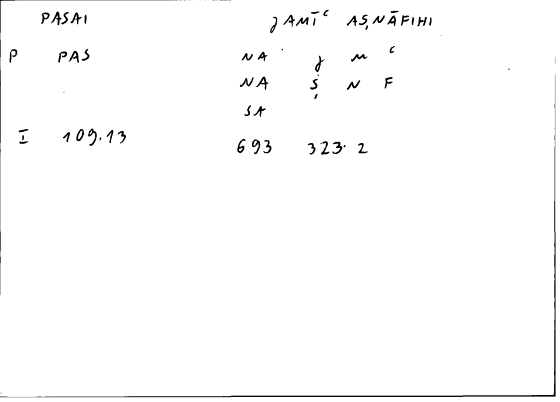 PASAI ȷAMĪᶜ AṢNĀFIHI
P PAS NA ȷ M ᶜ
NA Ṣ N F
SA
I 109.13 693 323.2